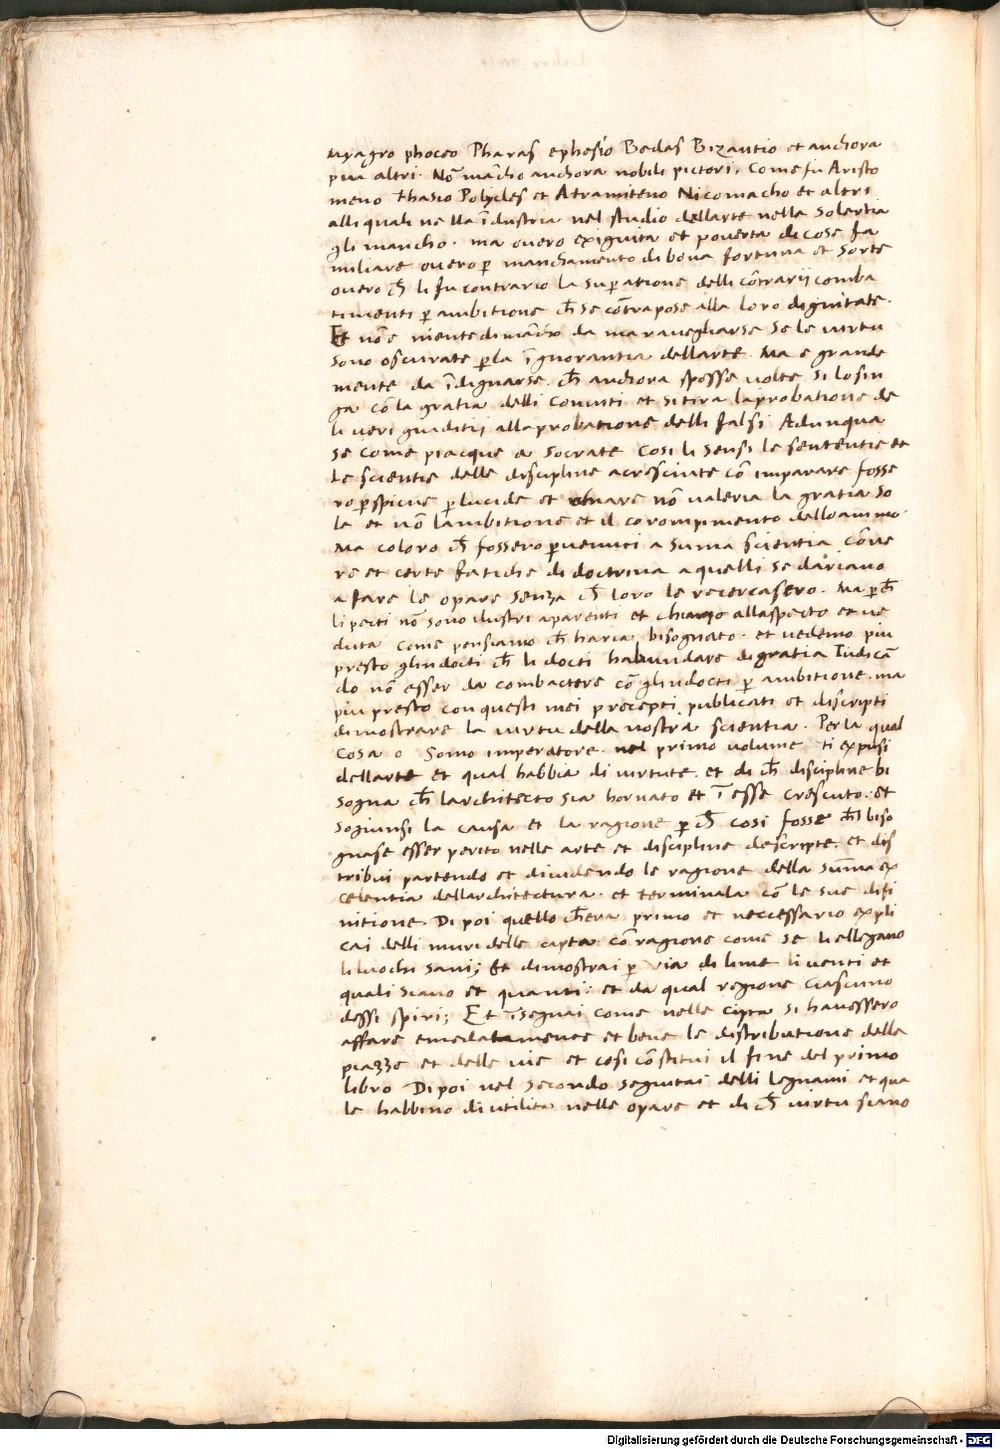 myagro phoceo Pharas ephesio Bedas Bizantio et anchora
piu altri. Nō mācho anchora nobili pictori, Come fu Aristo
meno thasio Polycles et Atramiteno Nicomacho et altri
alli quali ne lla īdustria nel studio dellarte nella solertia
gli mancho. ma overo exiguita et poverta di cose fa
miliare overo p̱ manchamento di bona fortuna et sorte
overo ch̄ li fu contrario la sup̱atione delli cōtrarij comba
timenti p̱ ambitione ch̄ se cōtrapose alla loro dignitate.
Et nōe niente di mācho da maravegliarse se le virtu
sono obscurate p̱ la īgnorantia dellarte. Ma e grande
mente da īdignarse. ch̄ anchora spesse volte si losin
ga cō la gratia delli conviti et si tira laprobatione de
li veri giuditij alla probatione delli falsi Adunqua
se come piacque a Socrate cosi li sensi le sententie et
le scientie delle discipline acresciute cō imparare fosse
ro p̱spicue p̱lucide et chiare nō valeria la gratia so
la et nō lambitione et il corompimento dello animo.
Ma coloro ch̄ fossero p̱venuti a suma scientia cō ve
re et certe fatiche di doctrina a quelli se dariano
a fare le opare senza ch̄ loro le recercasero. Ma p̱ ch̄
li peciti nō sono ilustri aparenti et chiaro allaspecto et ve
duta come pensiamo ch̄ haria bisognato. et vedemo piu
presto gli indocti ch̄ li docti habundare di gratia Iudicā
do nō esser da combactere cō gli indocti p̱ ambitione. ma
piu presto con questi mei precepti publicati et discripti
dimostrare la virtu della nostra scientia. Per la qual
cosa o Somo imperatore. nel primo volume ti exposi
dellarte et qual habbia di virtute. et di ch̄ discipline bi
sogna ch̄ larchitecto sia hornato et ī esse cresciuto. et
sogiunsi la causa et la ragione p̱ ch̄ cosi fosse ch̄ biso
gnase esser perito nelle arte et discipline descripte. et dis
tribui partendo et dividendo le ragione della sūma ex
celentia dellarchitectura. et terminala cō le sue difi
nitione. Di poi quello ch̄ era primo et neccessario expli
cai delli muri delle cipta cō ragione come se li ellegano
li luochi sani; Et dimostrai p̱ via di linee li venti et
quali siano et quanti: et da qual regione ciascuno
dessi spiri; Et īsegnai come nelle cipta si havessero
affare emendatamente et bene le distributione delle
piazze et delle vie et cosi cōstitui il fine del primo
libro Di poi nel secondo seguitai delli legnami et qua
le habbino di utilita nelle opare et di ch̄ virtu siano
Digitalisierung gefördert durch die Deutsche Forschungsgemeinschaft - DFG